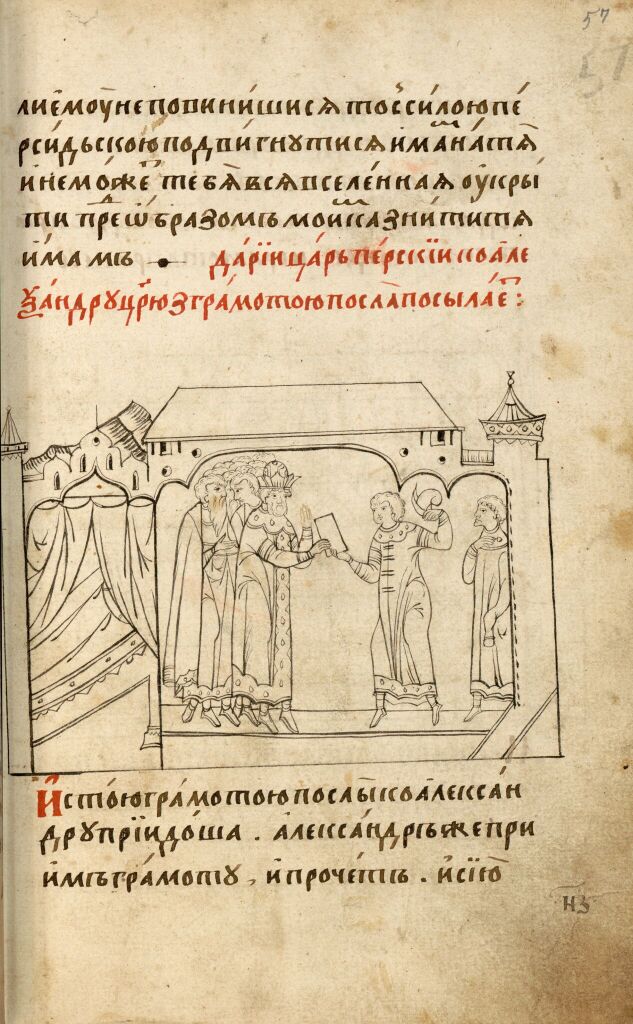 57
57
лиемоу неповинишися тос̾ силою пе
рсидьскою подвигнутися имаⷨ на тѧ̀
и не може тебѧ всѧ вселе́ннаѧ оу҆кры́
ти преⷣ ѡбразомъ моиⷨ казнити тѧ
и҆мамъ • да́рїи ца́рь пе́рскїи ко але
ѯа́ндру црю̀ з гра́мотою посла̀ посылаеⷮ :
И҆ с тою гра́мотою послы̀ ко алекса́н
дру прїидо́ша . алекса́ндръ же при
и́мъ гра́моту , и҆ прочетъ . и҆ сїю̀
н҃з